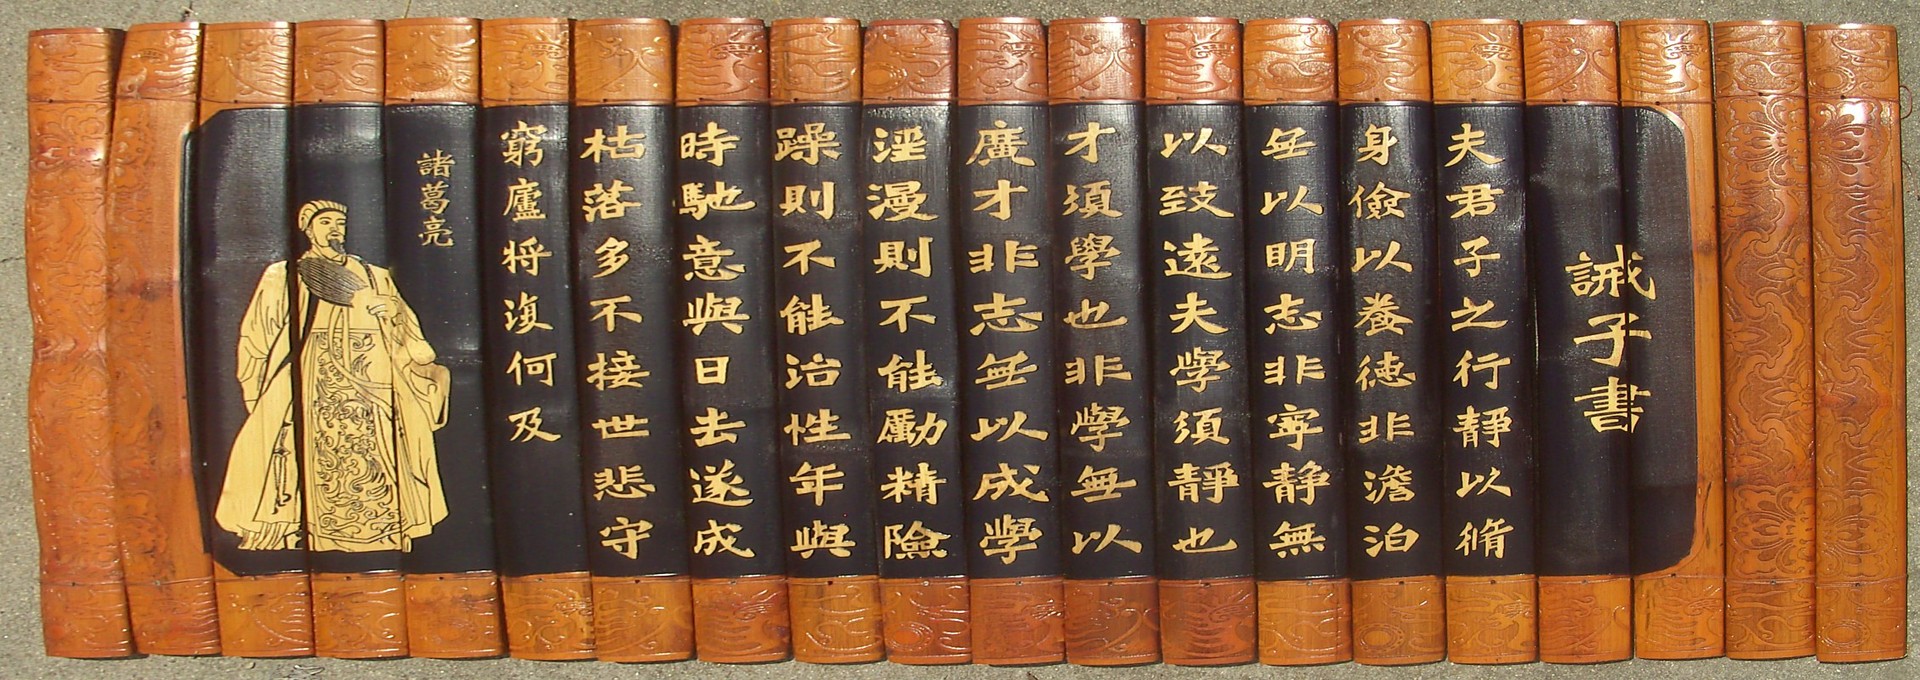 誡子書
夫君子之行靜以脩
身儉以養德非澹泊
無以明志非寧静無
以致遠夫學須靜也
才須學也非學無以
廣才非志無以成學
淫漫則不能勵精險
躁則不能治性年與
時馳意與日去遂成
枯落多不接世悲守
窮廬將復何及
諸葛亮